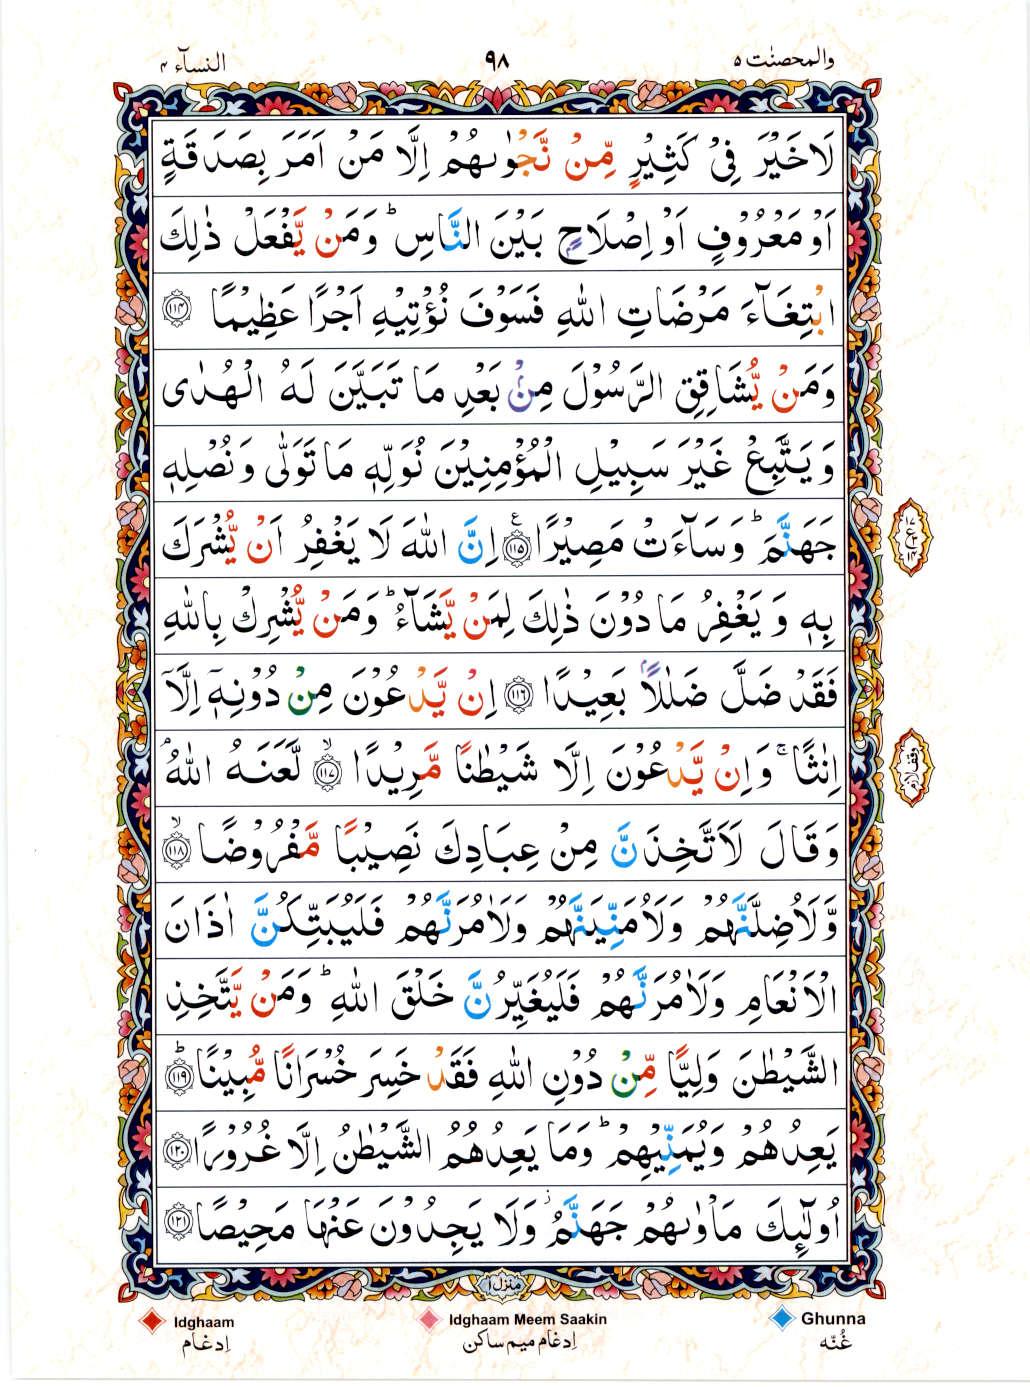 والمحصنٰت ۵
۹۸
النسآء ۴
لَاخَيْرَ فِيْ كَثِيْرٍ مِّنْ نَّجْوٰىهُمْ اِلَّا مَنْ اَمَرَ بِصَدَقَةٍ
اَوْ مَعْرُوْفٍ اَوْ اِصْلَاحٍۭ بَيْنَ النَّاسِ ؕ وَمَنْ يَّفْعَلْ ذٰلِكَ
ابْتِغَآءَ مَرْضَاتِ اللّٰهِ فَسَوْفَ نُؤْتِيْهِ اَجْرًا عَظِيْمًا ﴿۱۱۴﴾
وَمَنْ يُّشَاقِقِ الرَّسُوْلَ مِنْۢ بَعْدِ مَا تَبَيَّنَ لَهُ الْهُدٰى
وَيَتَّبِعْ غَيْرَ سَبِيْلِ الْمُؤْمِنِيْنَ نُوَلِّهٖ مَا تَوَلّٰى وَنُصْلِهٖ
جَهَنَّمَ ؕ وَسَآءَتْ مَصِيْرًا ﴿۱۱۵﴾ ع اِنَّ اللّٰهَ لَا يَغْفِرُ اَنْ يُّشْرَكَ
بِهٖ وَيَغْفِرُ مَا دُوْنَ ذٰلِكَ لِمَنْ يَّشَآءُ ؕ وَمَنْ يُّشْرِكْ بِاللّٰهِ
فَقَدْ ضَلَّ ضَلٰلًاۢ بَعِيْدًا ﴿۱۱۶﴾ اِنْ يَّدْعُوْنَ مِنْ دُوْنِهٖۤ اِلَّاۤ
اِنٰثًا ۚ وَاِنْ يَّدْعُوْنَ اِلَّا شَيْطٰنًا مَّرِيْدًا ﴿۱۱۷﴾ ۙ لَّعَنَهُ اللّٰهُ ۘ
وَقَالَ لَاَتَّخِذَنَّ مِنْ عِبَادِكَ نَصِيْبًا مَّفْرُوْضًا ﴿۱۱۸﴾ ۙ
وَّلَاُضِلَّنَّهُمْ وَلَاُمَنِّيَنَّهُمْ وَلَاٰمُرَنَّهُمْ فَلَيُبَتِّكُنَّ اٰذَانَ
الْاَنْعَامِ وَلَاٰمُرَنَّهُمْ فَلَيُغَيِّرُنَّ خَلْقَ اللّٰهِ ؕ وَمَنْ يَّتَّخِذِ
الشَّيْطٰنَ وَلِيًّا مِّنْ دُوْنِ اللّٰهِ فَقَدْ خَسِرَ خُسْرَانًا مُّبِيْنًا ﴿۱۱۹﴾ ؕ
يَعِدُهُمْ وَيُمَنِّيْهِمْ ؕ وَمَا يَعِدُهُمُ الشَّيْطٰنُ اِلَّا غُرُوْرًا ﴿۱۲۰﴾
اُولٰٓئِكَ مَاْوٰىهُمْ جَهَنَّمُ ؗ وَلَا يَجِدُوْنَ عَنْهَا مَحِيْصًا ﴿۱۲۱﴾
وقف لازم
منزل ۱
Idghaam
اِدغام
Idghaam Meem Saakin
اِدغام میم ساکن
Ghunna
غُنّه